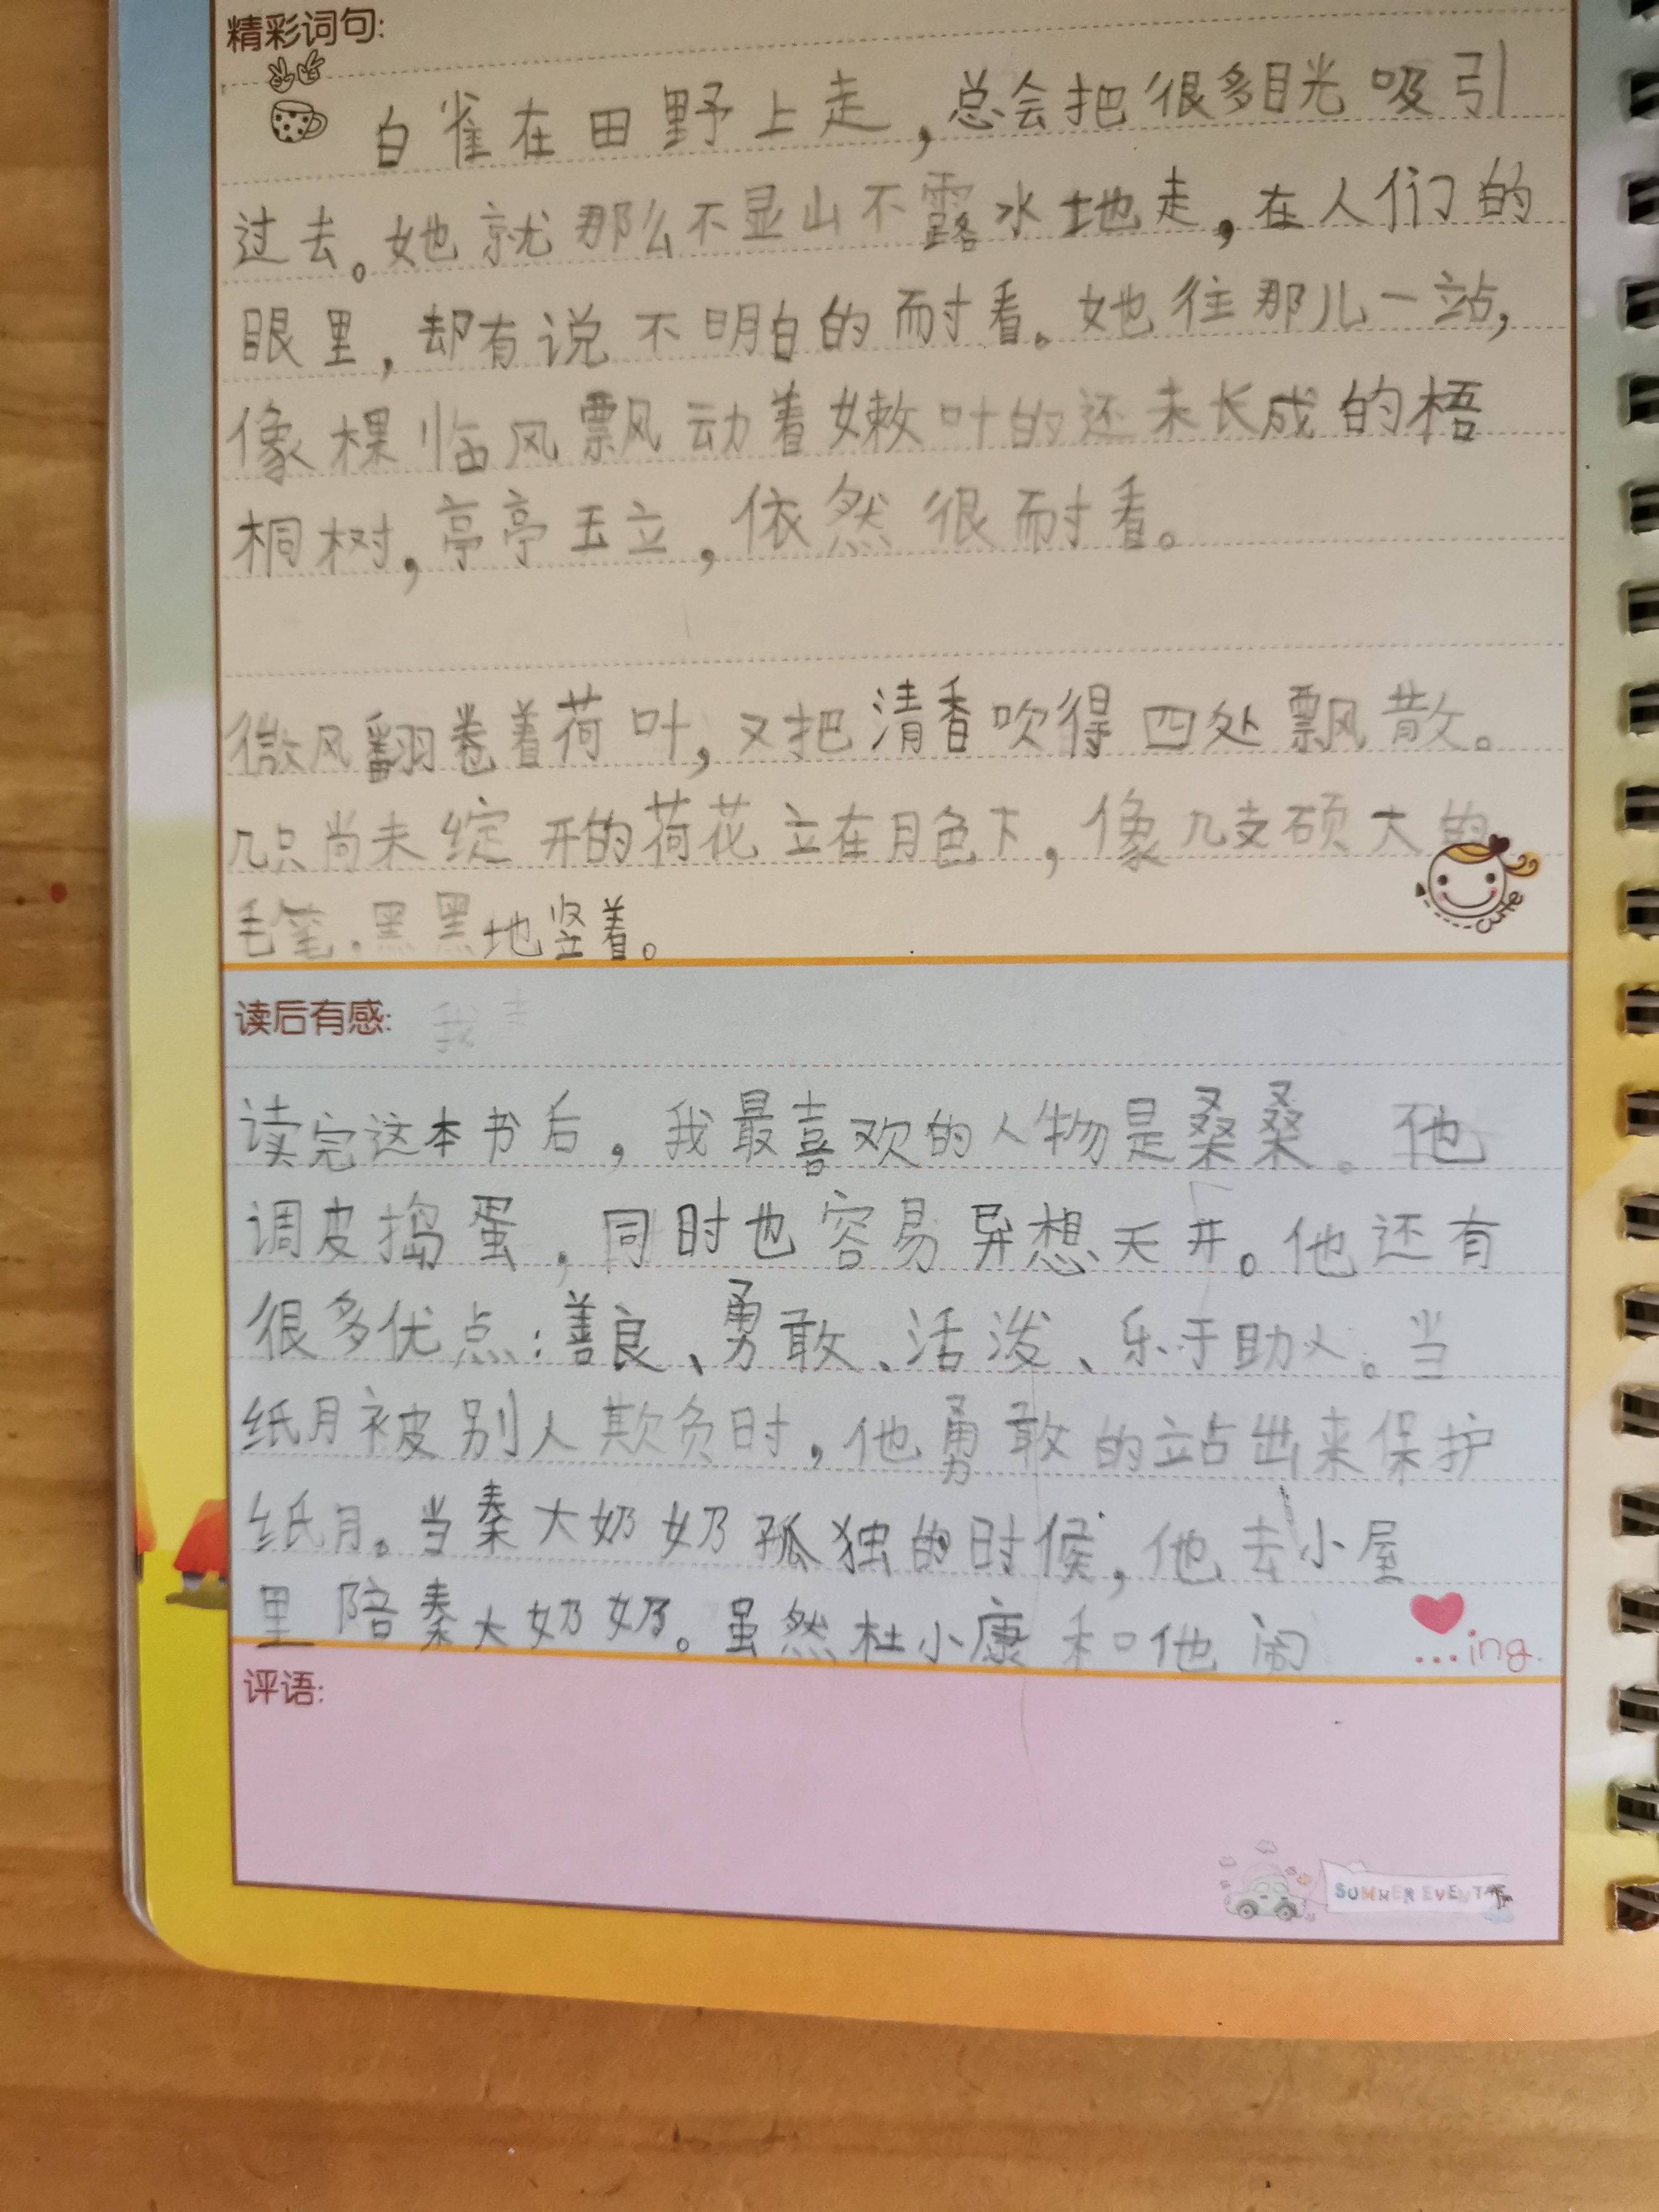 精彩词句:
白雀在田野上走，总会把很多目光吸引
过去。她就那么不显山不露水地走，在人们的
眼里，却有说不明白的耐看。她往那儿一站，
像棵临风飘动着嫩叶的还未长成的梧
桐树，亭亭玉立，依然很耐看。
微风翻卷着荷叶，又把清香吹得四处飘散。
几只尚未绽开的荷花立在月色下，像几支硕大的
毛笔，黑黑地竖着。
cute
读后有感:
读完这本书后，我最喜欢的人物是桑桑。他
调皮捣蛋，同时也容易异想天开。他还有
很多优点：善良、勇敢、活泼、乐于助人。当
纸月被别人欺负时，他勇敢的站出来保护
纸月。当秦大奶奶孤独的时候，他去小屋
里陪秦大奶奶。虽然杜小康和他闹
...ing.
评语:
SUMMER EVENT